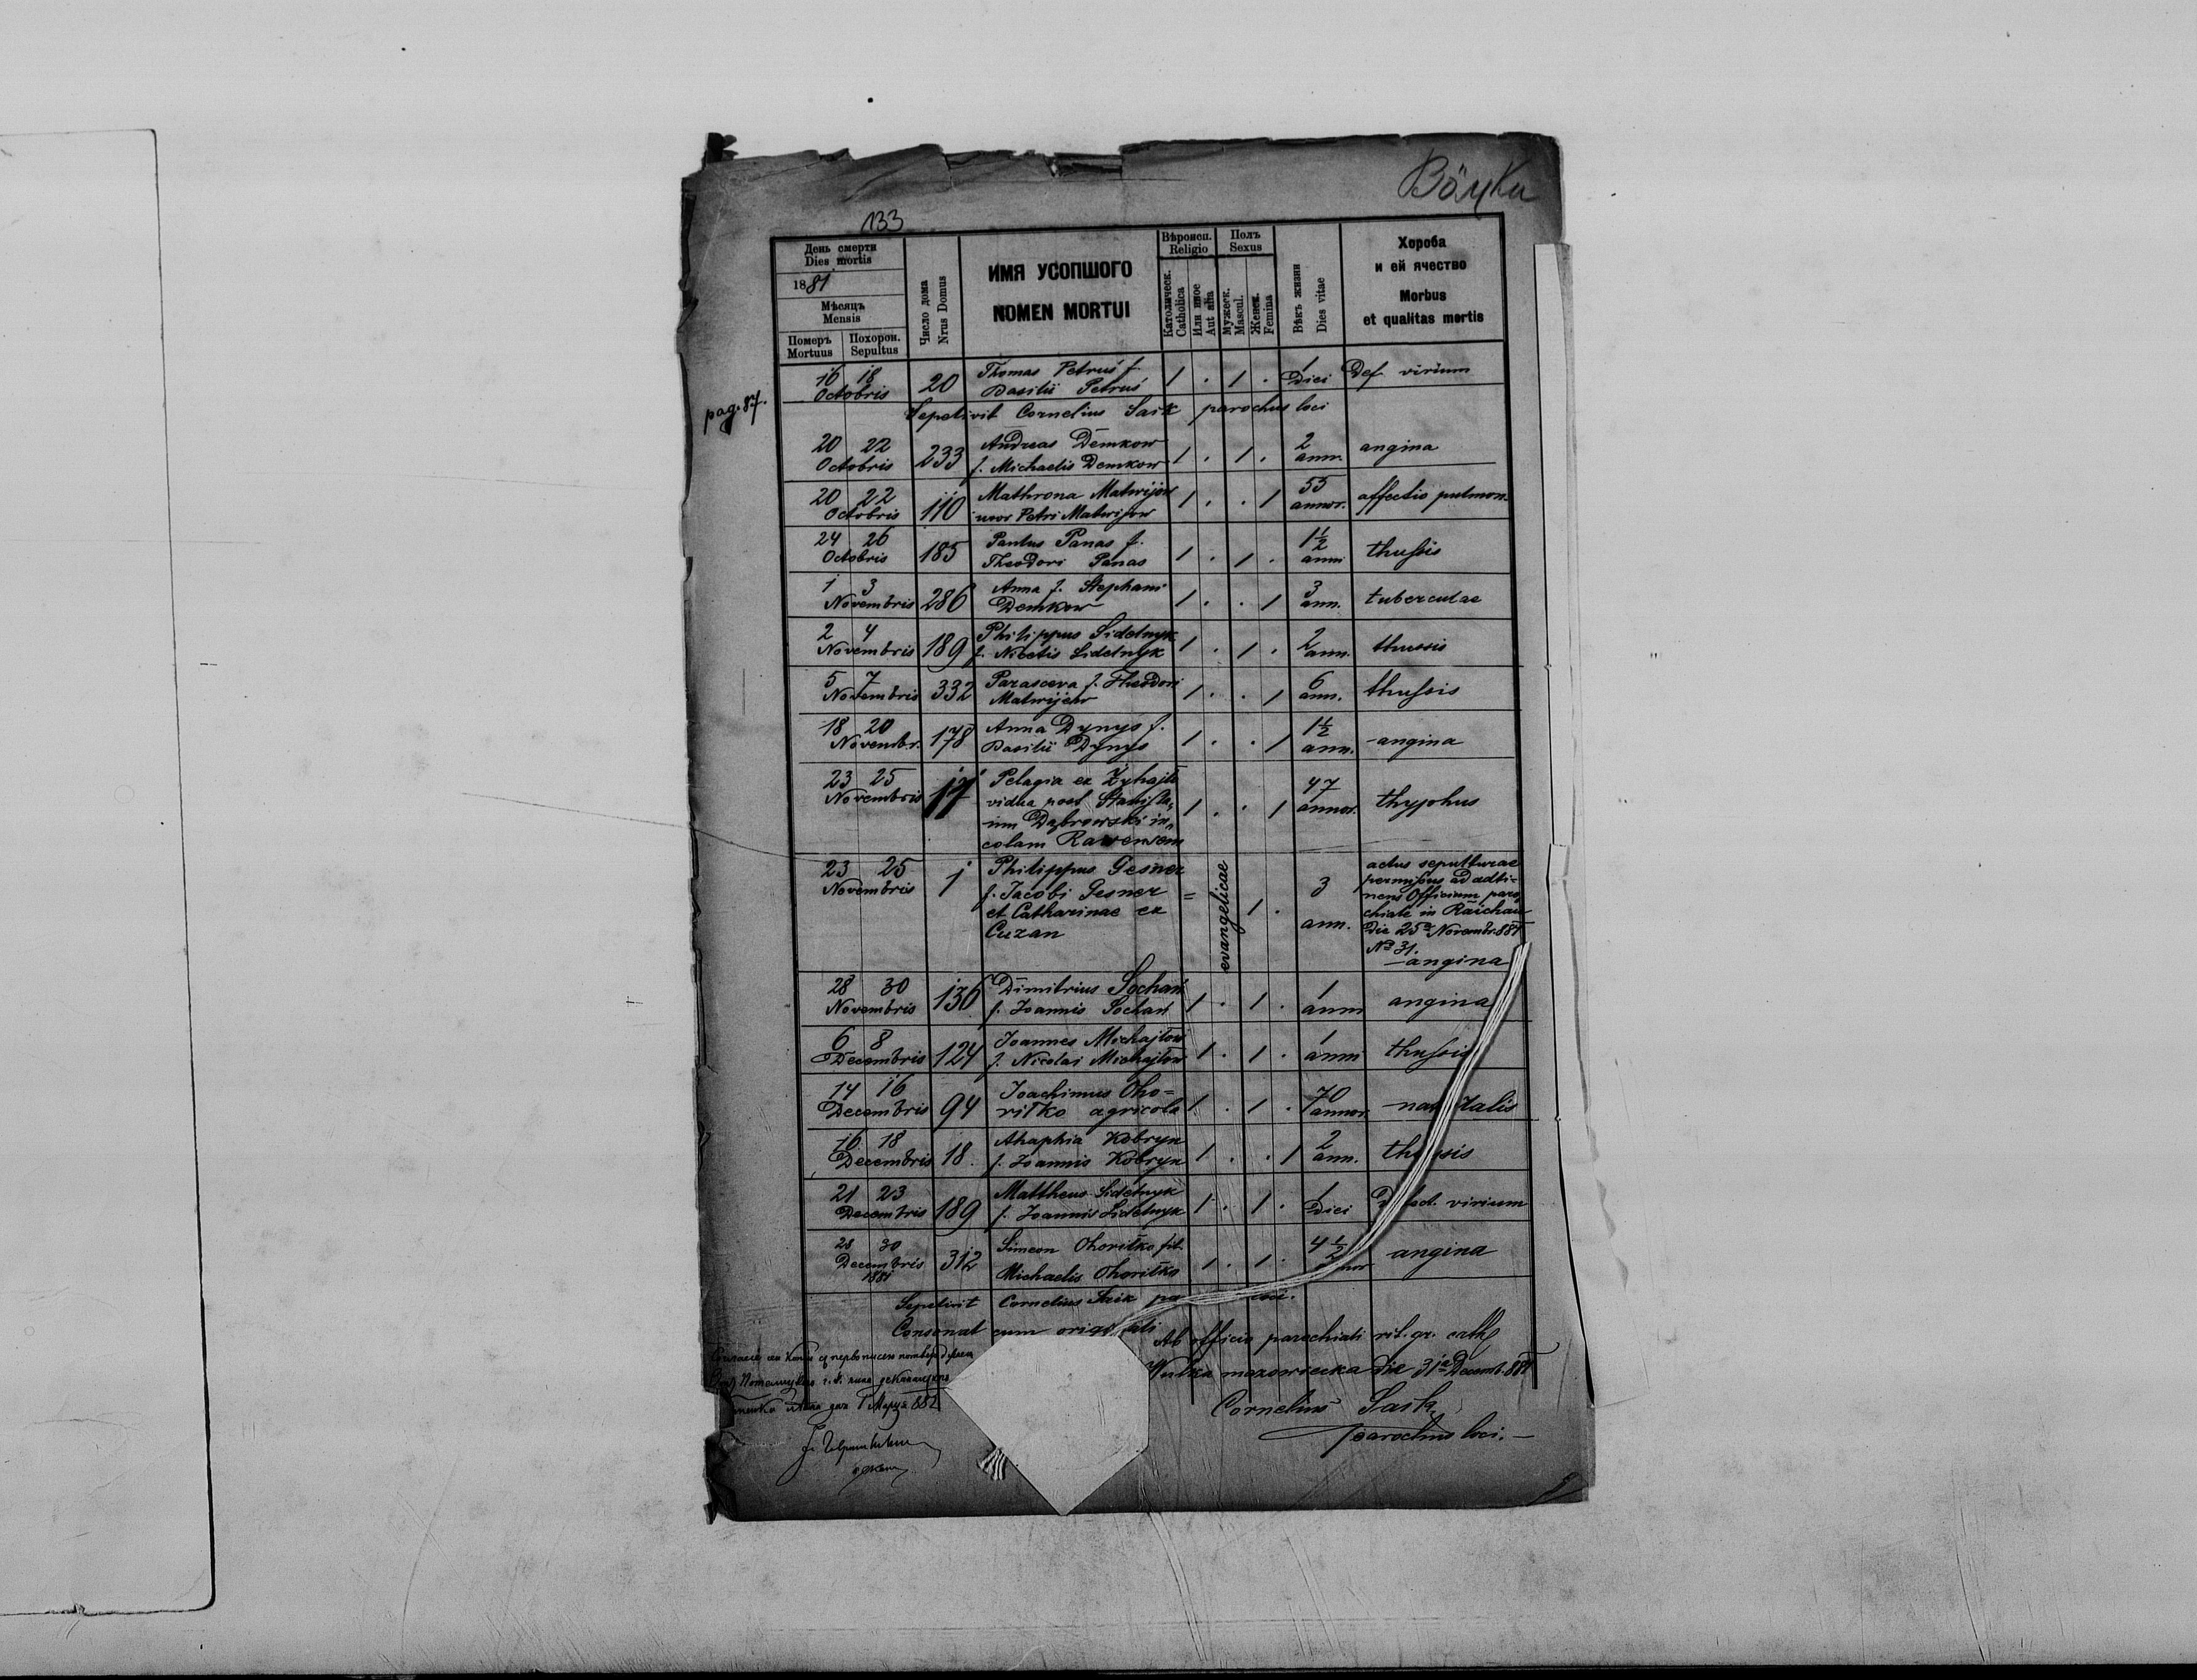 133
День смерти
Dies mortis
1881
Мѣсяцъ
Mensis
Померъ
Mortuus
Похорон.
Sepultus
Число дома
Nrus Domus
ИМЯ УСОПШОГО
NOMEN MORTUI
Вѣроисп.
Religio
Католическ.
Catholica
Или иное
Aut alia
Полъ
Sexus
Мужеск.
Mascul.
Женск.
Femina
Вѣкъ жизни
Dies vitae
Хороба
и ей ячество
Morbus
et qualitas mortis
pag. 87.
16 18 Octobris 20 Thomas Petruś f. Basilii Petruś 1 . 1 . 1 Diei Def virium
Sepelivit Cornelius Saik parochus loci
20 22 Octobris 233 Andreas Demkow f. Michaelis Demkow 1 . 1 . 2 ann. angina
20 22 Octobris 110 Mathrona Matwijow uxor Petri Matwijow 1 . . 1 55 annor. affectio pulmon.
24 26 Octobris 185 Pantus Panas f. Theodori Panas 1 . 1 . 1½ anni thussis
1 3 Novembris 286 Anna f. Stephani Demkow 1 . . 1 3 ann. tuberculae
2 4 Novembris 189 Philippus Sidelnyk f. Nicetis Sidelnyk 1 . 1 . 2 ann. thussis
5 7 Novembris 332 Parasceva f. Theodori Matwijew 1 . . 1 6 ann. thussis
18 20 Novembr. 178 Anna Dynys f. Basilii Dynys 1 . . 1 1½ ann. angina
23 25 Novembris 17 Pelagia ex Zyhajło
vidua post Stanisla„
um Dąbrowski in„
colam Rawensem 1 . . 1 47 annor. thyphus
23 25 Novembris 1 Philippus Gesner
f. Jacobi Gesner
et Catharinae ex
Cuzan = evangelicae 1 . 3 ann.
actus sepulturae
permissus ad adti-
nens Officium paro„
chiale in Raichau
die 25ª Novembr. 881
Nº 31.
angina
28 30 Novembris 136 Dimitrius Sochań f. Joannis Sochań 1 . 1 . 1 anni angina
6 8 Decembris 124 Joannes Michajłow f. Nicolai Michajłow 1 . 1 . 1 anni thussis
14 16 Decembris 94 Joachimus Oho=
ritko agricola 1 . 1 . 70 annor. na talis
16 18 Decembris 18 Ahaphia Kobryn f. Joannis Kobryn 1 . . 1 2 ann. th sis
21 23 Decembris 189 Mattheus Sidelnyk f. Joannis Sidelnyk 1 . 1 . 1 Diei D virium
28 30 Decembris 1881 312 Simeon Ohoritko fil. Michaelis Ohoritko 1 . 1 . 4½ angina
Sepelivit Cornelius Saik pa loci.
Consonat cum originali
Ab officio parochiali rit. gr. cath
Wulka mazowiecka die 31ª Decemb. 881
Cornelius Saik
parochus loci.